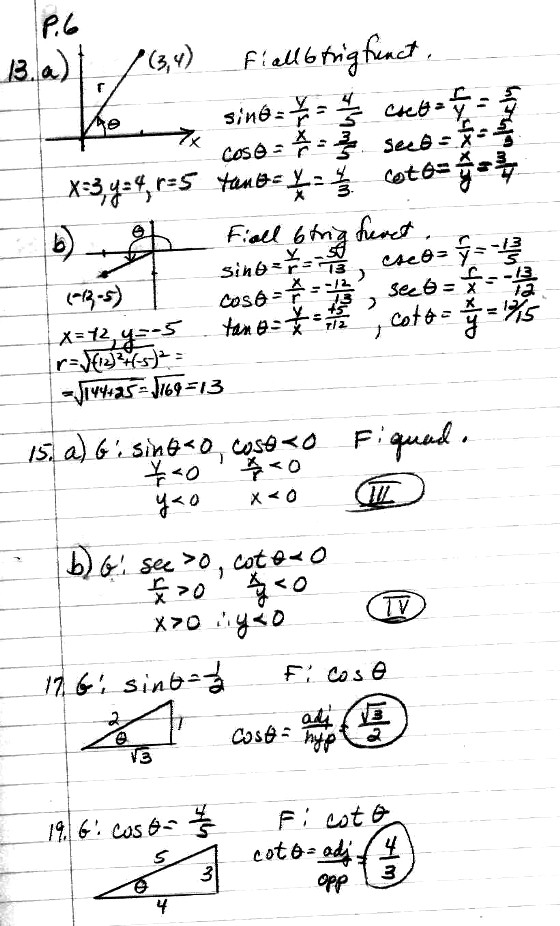 P.6
13. a) (3,4) F: all 6 trig funct.
r
θ
x
sinθ = y/r = 4/5 cscθ = r/y = 5/4
cosθ = x/r = 3/5 secθ = r/x = 5/3
x=3, y=4, r=5 tanθ = y/x = 4/3 cotθ = x/y = 3/4
b) θ F: all 6 trig funct.
(-12,-5)
sinθ = y/r = -5/13, cscθ = r/y = -13/5
cosθ = x/r = -12/13, secθ = r/x = -13/12
x = -12, y = -5 tanθ = y/x = +5/+12, cotθ = x/y = 12/15
r = √(-12)²+(-5)² =
= √144+25 = √169 = 13
15. a) G: sinθ<0, cosθ<0 F: quad.
y/r < 0 x/r < 0
y<0 x<0 III
b) G: sec >0, cotθ<0
r/x > 0 x/y < 0
x>0 ∴ y<0 IV
17. G: sinθ = 1/2 F: cosθ
2 1
θ
√3
cosθ = adj/hyp = √3/2
19. G: cosθ = 4/5 F: cotθ
5 3
θ
4
cotθ = adj/opp = 4/3